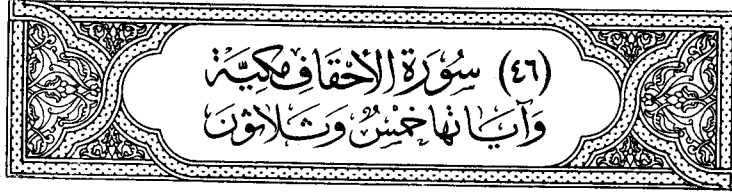 (٤٦) سُورَةُ الأَحْقَافِ مَكِيَّة
وَآيَاتُهَا خَمْسٌ وَثَلَاثُونَ